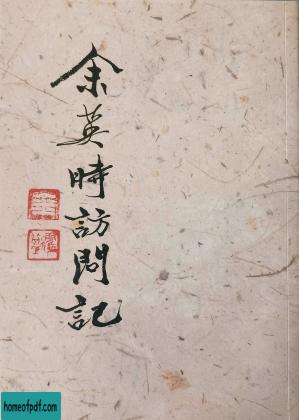 余英時訪問記
homeofpdf.com